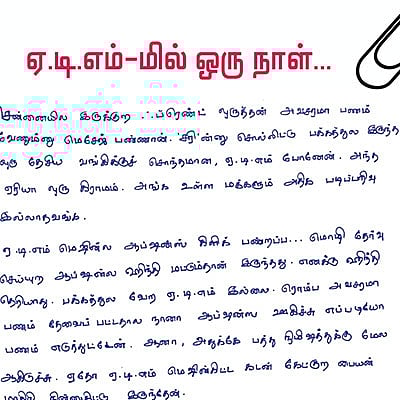 ஏ.டி.எம்-மில் ஒரு நாள்...
சென்னையில இருக்குற ஃப்ரெண்ட் ஒருத்தன் அவசரமா பணம்
வேணும்னு மெசேஜ் பண்ணான். சரின்னு சொல்லிட்டு பக்கத்துல இருந்த
ஒரு தேசிய வங்கிக்குச் சொந்தமான, ஏ.டி.எம் போனேன். அந்த
ஏரியா ஒரு கிராமம். அங்க உள்ள மக்களும் அதிக படிப்பறிவு
இல்லாதவங்க.
ஏ.டி.எம் மெஷின்ல ஆப்ஷன்ஸ் கிளிக் பண்றப்ப... மொழி தேர்வு
செய்யுற ஆப்ஷன்ல ஹிந்தி மட்டும்தான் இருந்தது. எனக்கு ஹிந்தி
தெரியாது. பக்கத்துல வேற ஏ.டி.எம் இல்லை. ரொம்ப அவசரமா
பணம் தேவைப்பட்டதால நானா ஆப்ஷன்ஸ ஊகிச்சு எப்படியோ
பணம் எடுத்துட்டேன். ஆனா, அதுக்கே பத்து நிமிஷத்துக்கு மேல
ஆகிடுச்சு. ஏதோ ஏ.டி.எம் மெஷின்கிட்ட கடன் கேட்குற பையன்
மாதிரி நின்னுகிட்டு இருந்தேன்.